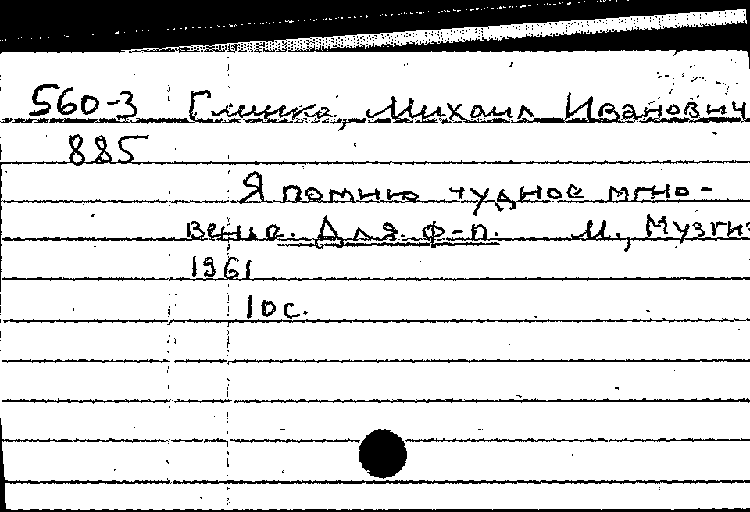 560-3 Глинка, Михаил Иванович
885
Я помню чудное мгно-
венье. Для ф-п. М., Музгиз
1961
10 с.